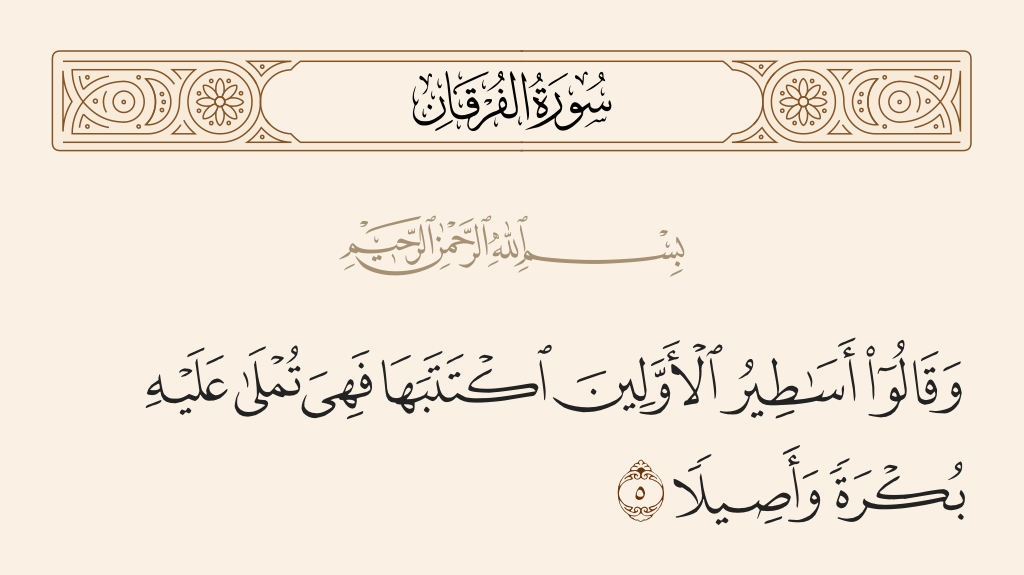 سُورَةُ الفُرْقَانِ
بِسْمِ ٱللَّهِ ٱلرَّحْمَٰنِ ٱلرَّحِيمِ
وَقَالُوٓا۟ أَسَـٰطِيرُ ٱلْأَوَّلِينَ ٱكْتَتَبَهَا فَهِىَ تُمْلَىٰ عَلَيْهِ
بُكْرَةً وَأَصِيلًا ٥